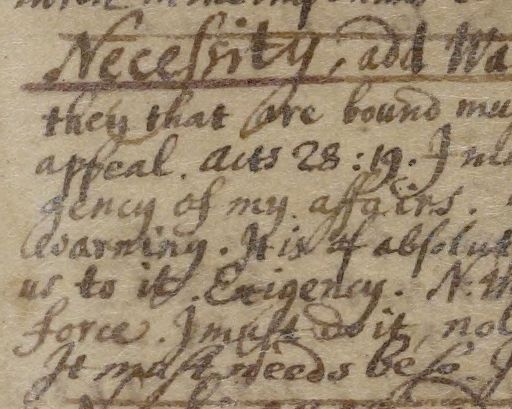 Necessity, add Wa
they that are bound mu
appeal. acts 28:19. I m
gency of my affairs.
Warning. It is of absolut
us to it. Exigency. N. W
force. I must do it, no
It must needs be so. I